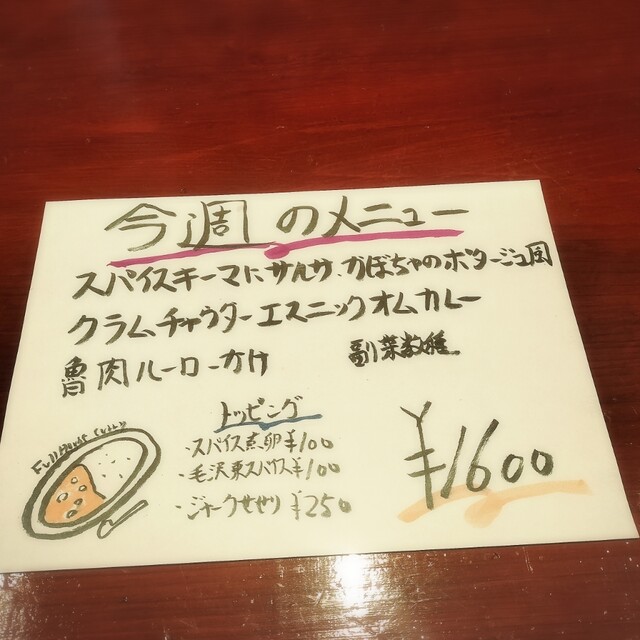 今週のメニュー
スパイスキーマにサルサ、かぼちゃのポタージュ風
クラムチャウダーエスニックオムカレー
魯肉ルーローかけ 副菜数種
トッピング
・スパイス煮卵¥100
・毛沢東スパイス¥100
・ジャークせせり ¥250
¥1600